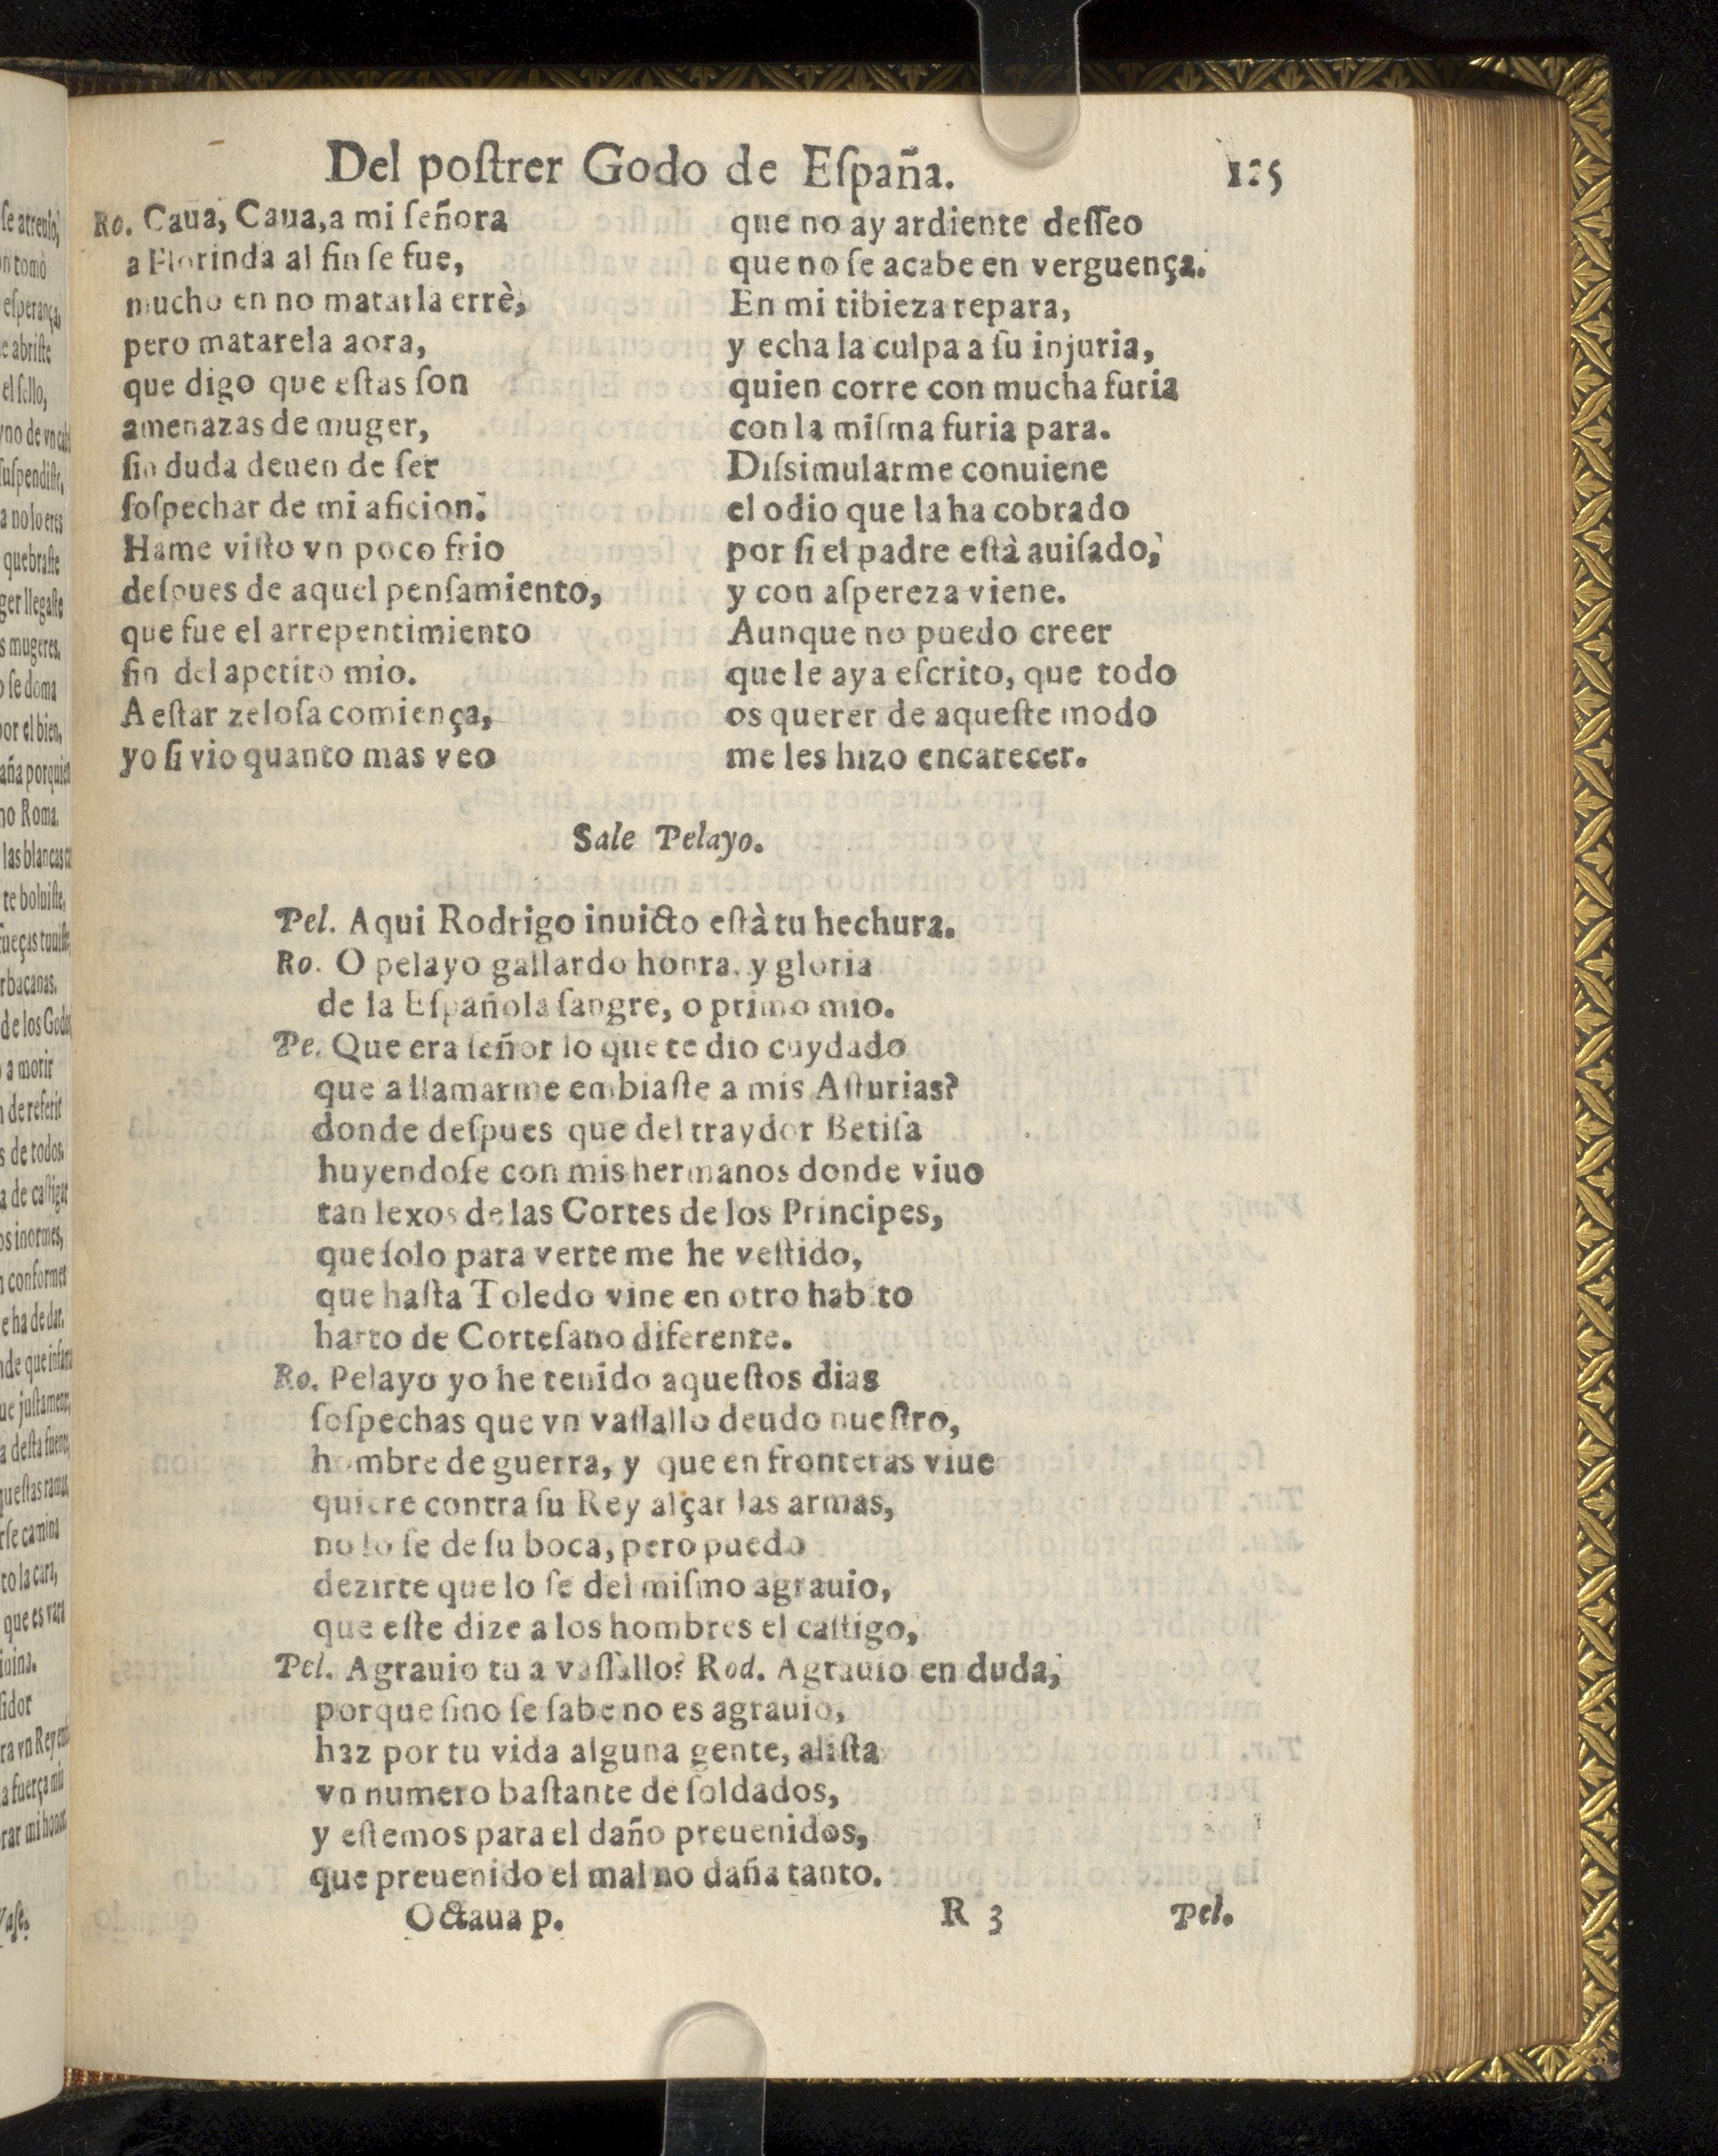 Del poſtrer Godo de Eſpaña. 125
Ro. Caua, Caua, a mi ſeñora
a Florinda al fin ſe fue,
mucho en no matarla errè,
pero matarela aora,
que digo que eſtas ſon
amenazas de muger,
ſin duda deuen de ſer
ſoſpechar de mi aficion.
Hame viſto vn poco frio
deſpues de aquel penſamiento,
que fue el arrepentimiento
fin del apetito mio.
A eſtar zeloſa comiença,
yo ſi vio quanto mas veo
que no ay ardiente deſſeo
que no ſe acabe en verguença.
En mi tibieza repara,
y echa la culpa a ſu injuria,
quien corre con mucha furia
con la miſma furia para.
Diſsimularme conuiene
el odio que la ha cobrado
por ſi el padre eſtà auiſado,
y con aſpereza viene.
Aunque no puedo creer
que le aya eſcrito, que todo
os querer de aqueſte modo
me les hizo encarecer.
Sale Pelayo.
Pel. Aqui Rodrigo inuicto eſtà tu hechura.
Ro. O pelayo gallardo honra, y gloria
de la Eſpañola ſangre, o primo mio.
Pe. Que era ſeñor lo que te dio cuydado
que a llamarme embiaſte a mis Aſturias?
donde deſpues que del traydor Betiſa
huyendoſe con mis hermanos donde viuo
tan lexos de las Cortes de los Principes,
que ſolo para verte me he veſtido,
que haſta Toledo vine en otro habito
harto de Corteſano diferente.
Ro. Pelayo yo he tenido aqueſtos dias
ſoſpechas que vn vaſſallo deudo nueſtro,
hombre de guerra, y que en fronteras viue
quiere contra ſu Rey alçar las armas,
no lo ſe de ſu boca, pero puedo
dezirte que lo ſe del miſmo agrauio,
que eſte dize a los hombres el caſtigo,
Pel. Agrauio tu a vaſſallo? Rod. Agrauio en duda,
porque ſino ſe ſabe no es agrauio,
haz por tu vida alguna gente, aliſta
vn numero baſtante de ſoldados,
y eſtemos para el daño preuenidos,
que preuenido el mal no daña tanto.
Octaua p. R 3 Pel.